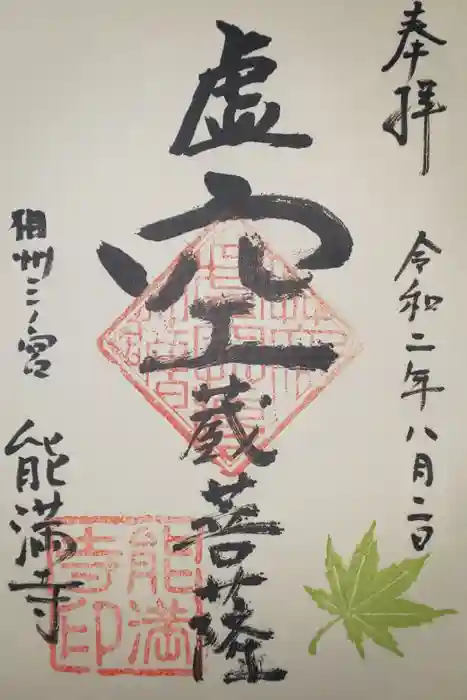 奉拝
令和二年八月二日
虚空蔵菩薩
相州三ノ宮
能満寺
能満
寺印